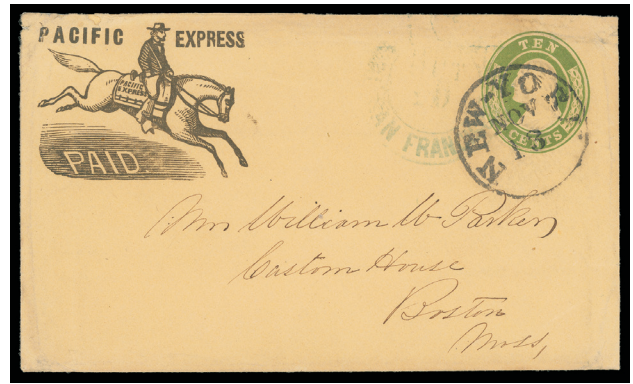 PACIFIC EXPRESS
PACIFIC
EXPRESS
PAID.
TEN
CENTS
SAN FRAN
NEW-YORK
NOV
13
William W Parker
Custom House
Boston
Mass,